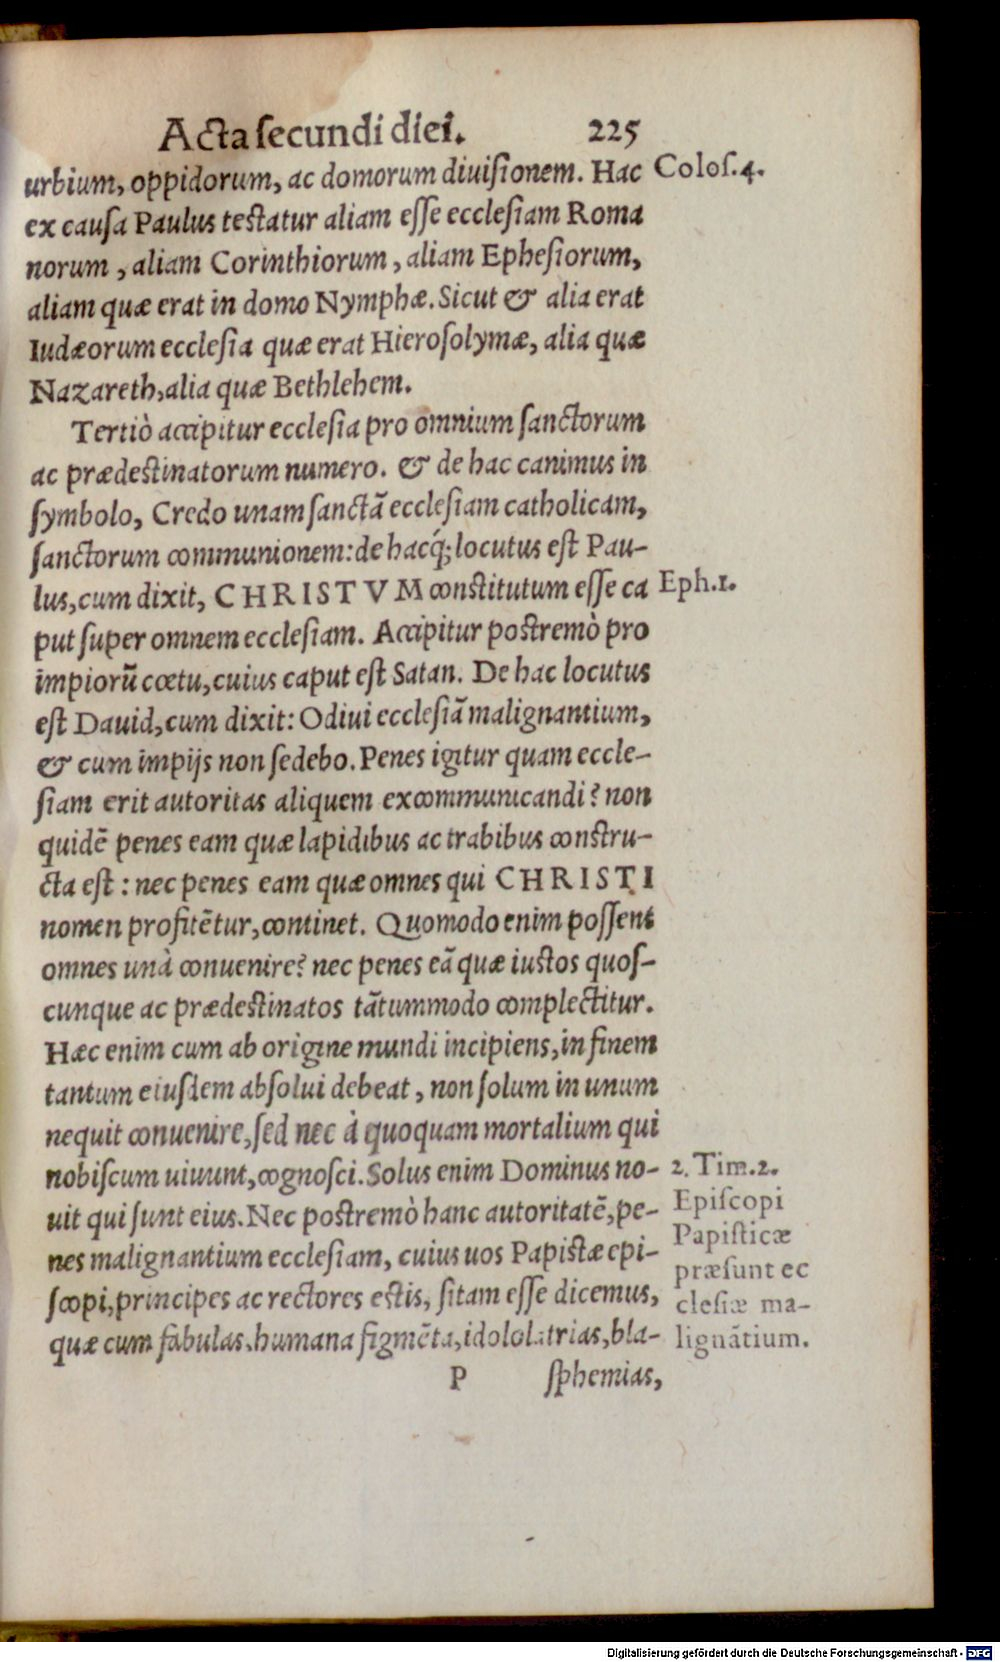 Acta secundi diei. 225
urbium, oppidorum, ac domorum diuisionem. Hac
Colos.4.
ex causa Paulus testatur aliam esse ecclesiam Roma
norum, aliam Corinthiorum, aliam Ephesiorum,
aliam quæ erat in domo Nymphæ. Sicut & alia erat
Iudæorum ecclesia quæ erat Hierosolymæ, alia quæ
Nazareth, alia quæ Bethlehem.
Tertiò accipitur ecclesia pro omnium sanctorum
ac prædestinatorum numero. & de hac canimus in
symbolo, Credo unam sanctã ecclesiam catholicam,
sanctorum communionem: de hacq́; locutus est Pau-
lus, cum dixit, CHRISTVM constitutum esse ca
Eph.1.
put super omnem ecclesiam. Accipitur postremò pro
impiorũ cœtu, cuius caput est Satan. De hac locutus
est Dauid, cum dixit: Odiui ecclesiã malignantium,
& cum impijs non sedebo. Penes igitur quam eccle-
siam erit autoritas aliquem excommunicandi? non
quidẽ penes eam quæ lapidibus ac trabibus constru-
cta est: nec penes eam quæ omnes qui CHRISTI
nomen profitẽtur, continet. Quomodo enim possent
omnes unà conuenire? nec penes eã quæ iustos quos-
cunque ac prædestinatos tãtummodo complectitur.
Hæc enim cum ab origine mundi incipiens, in finem
tantum eiusdem absolui debeat, non solum in unum
nequit conuenire, sed nec à quoquam mortalium qui
nobiscum uiuunt, cognosci. Solus enim Dominus no-
2. Tim.2.
uit qui sunt eius. Nec postremò hanc autoritatẽ, pe-
nes malignantium ecclesiam, cuius uos Papistæ epi-
scopi, principes ac rectores estis, sitam esse dicemus,
quæ cum fabulas, humana figmẽta, idololatrias, bla-
Episcopi
Papisticæ
præsunt ec
clesiæ ma-
lignãtium.
P sphemias,
Digitalisierung gefördert durch die Deutsche Forschungsgemeinschaft - DFG